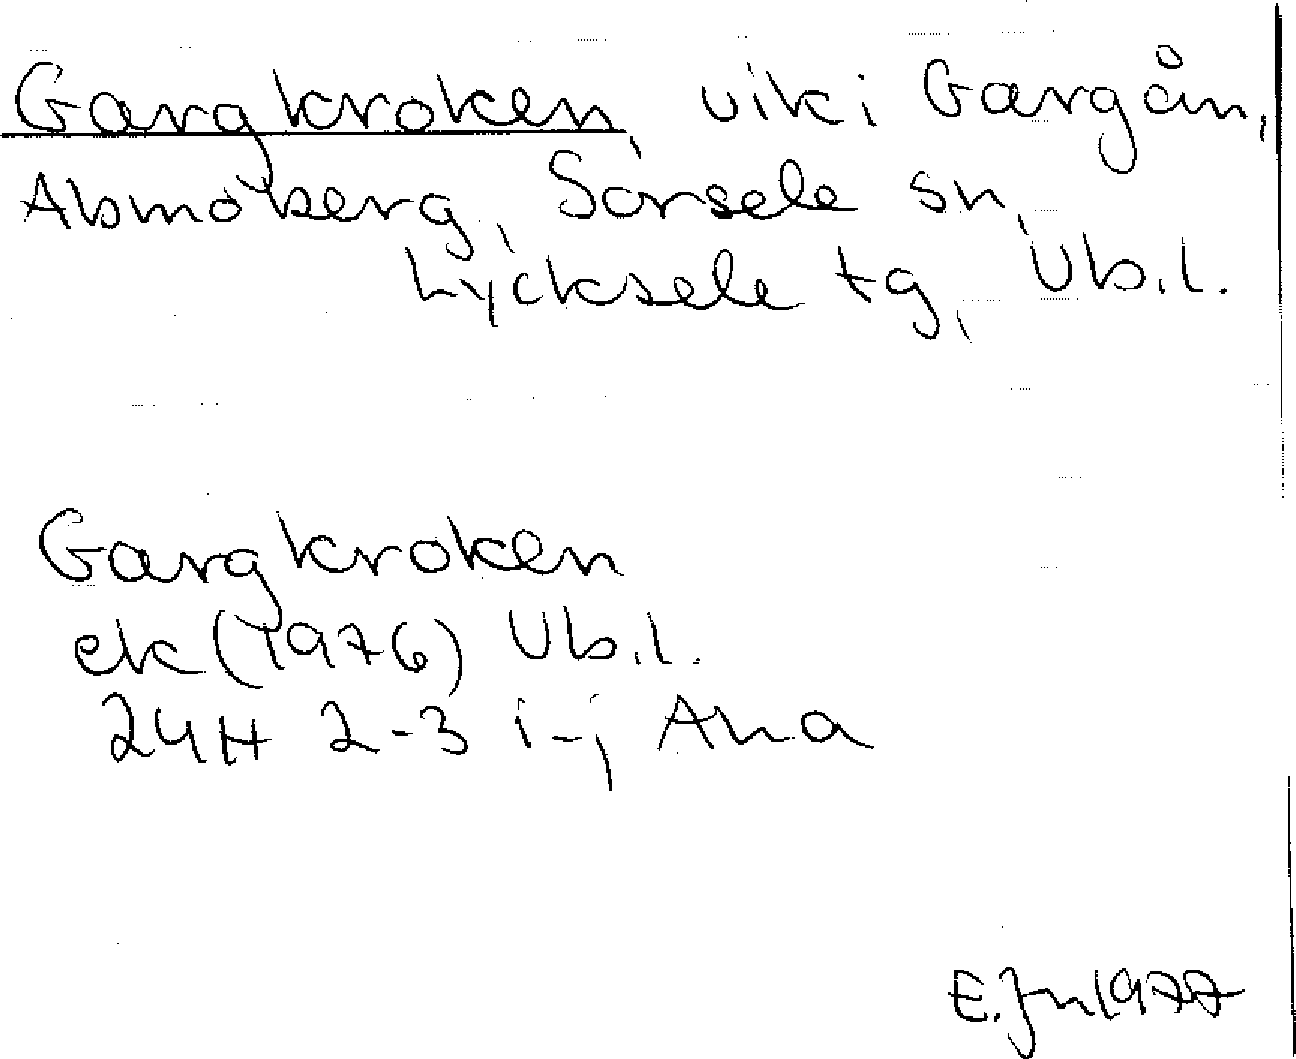 Gargkroken, vik i Gargån,
Abmoberg, Sorsele sn,
Lycksele tg, Vb.l.
Gargkroken
ek (1976) Vb.l.
24H 2-3 i-j Ana
E. Jn 1977